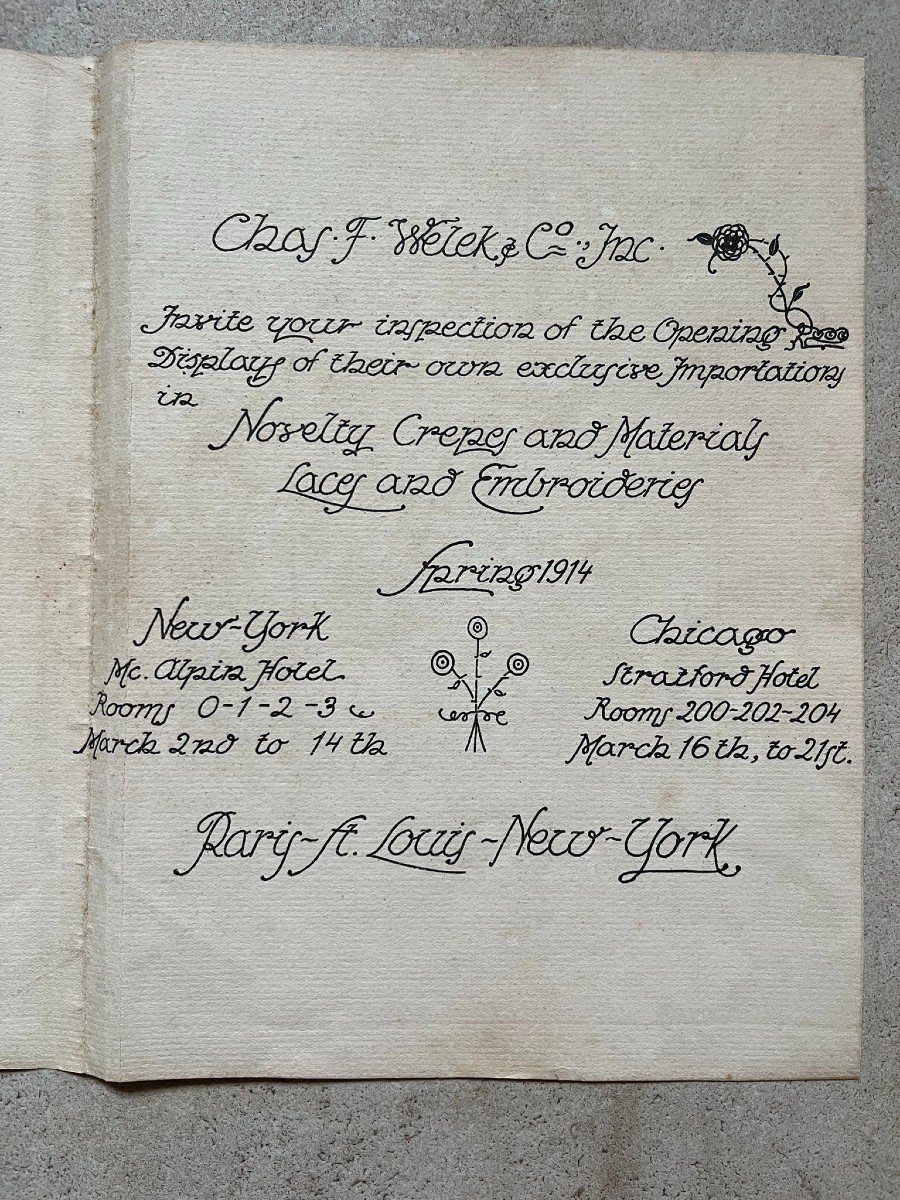 Chas. F. Welek & Co., Inc.
Invite your inspection of the Opening
Displays of their own exclusive Importations
in
Novelty Crepes and Materials
Laces and Embroideries
Spring 1914
New-York
Mc. Alpin Hotel
Rooms 0-1-2-3
March 2nd to 14th
Chicago
Stratford Hotel
Rooms 200-202-204
March 16th, to 21st.
Paris~St. Louis~New-York